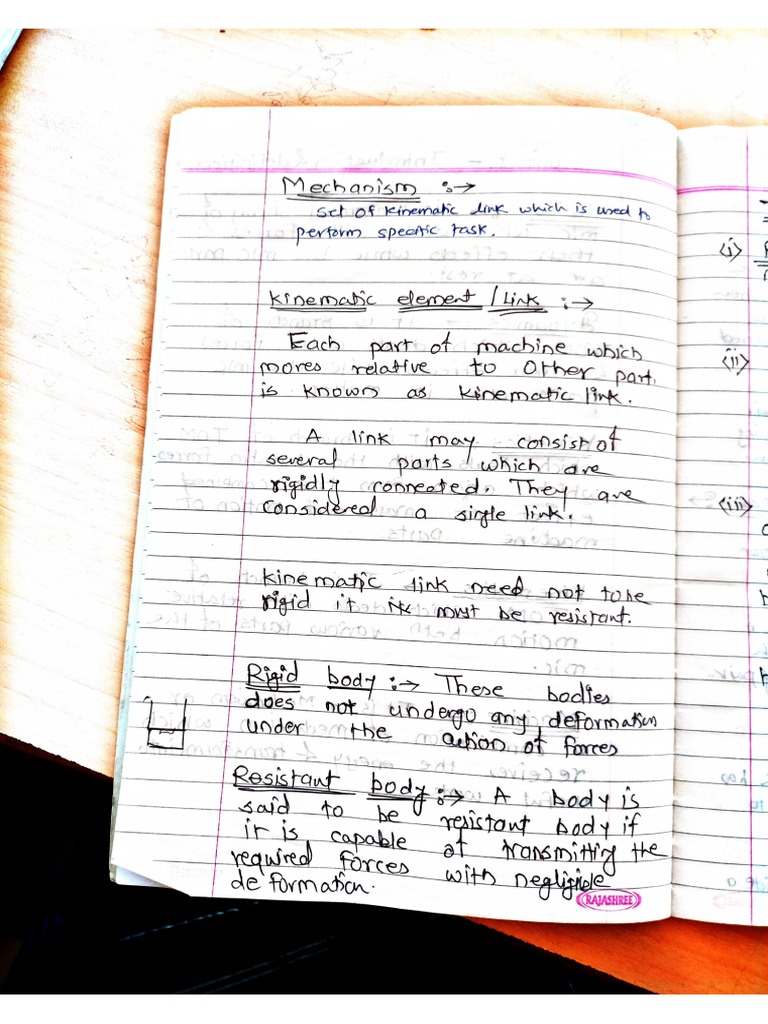 Mechanism :→
set of kinematic link which is used to
perform specific task.
Kinematic element / Link :→
Each part of machine which
mores relative to Other part
is known as kinematic link.
A link may consist of
several parts which are
rigidly connected. They are
Considered a single link.
Kinematic link need not to be
rigid it must be resistant.
Rigid body :→ These bodies
does not undergo any deformation
under the action of forces
Resistant body :→ A body is
said to be resistant body if
it is capable of transmitting the
required forces with negligible
deformation.
RAJASHREE
(i)
(ii)
(iii)